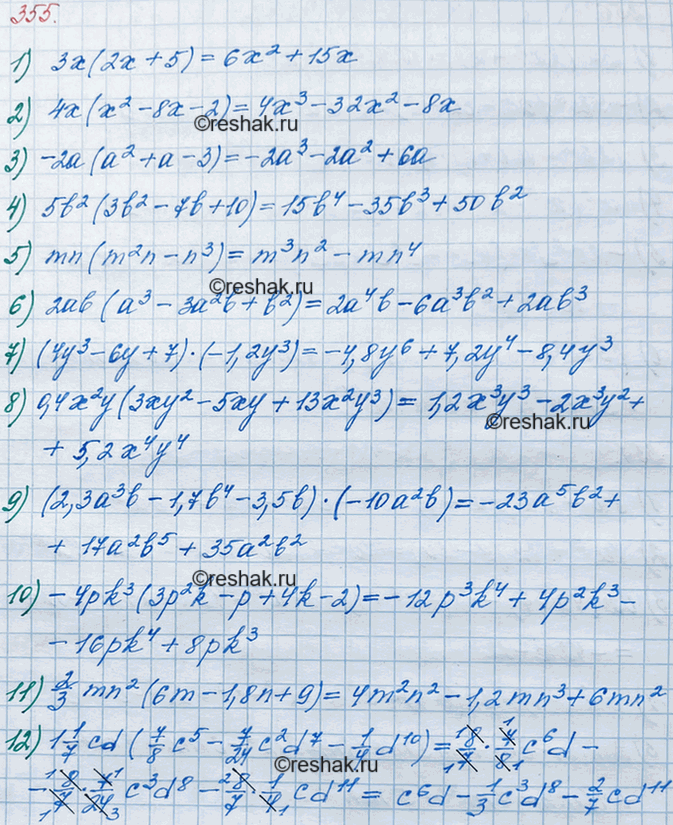 355.
1) 3x(2x+5)=6x²+15x
2) 4x(x²-8x-2)=4x³-32x²-8x
©reshak.ru
3) -2a(a²+a-3)=-2a³-2a²+6a
4) 5b²(3b²-7b+10)=15b⁴-35b³+50b²
5) mn(m²n-n³)=m³n²-mn⁴
©reshak.ru
6) 2ab(a³-3a²b+b²)=2a⁴b-6a³b²+2ab³
7) (4y³-6y+7)·(-1,2y³)=-4,8y⁶+7,2y⁴-8,4y³
8) 0,4x²y(3xy²-5xy+13x²y³)=1,2x³y³-2x³y²+
©reshak.ru
+5,2x⁴y⁴
9) (2,3a³b-1,7b⁴-3,5b)·(-10a²b)=-23a⁵b²+
+17a²b⁵+35a²b²
©reshak.ru
10) -4pk³(3p²k-p+4k-2)=-12p³k⁴+4p²k³-
-16pk⁴+8pk³
11) 2/3 mn²(6m-1,8n+9)=4m²n²-1,2mn³+6mn²
12) 1 1/7 cd(7/8 c⁵-7/24 c²d⁷-1/4 d¹⁰)=8/7·7/8 c⁶d-
-8/7·7/24 c³d⁸-8/7·1/4 cd¹¹=c⁶d-1/3 c³d⁸-2/7 cd¹¹